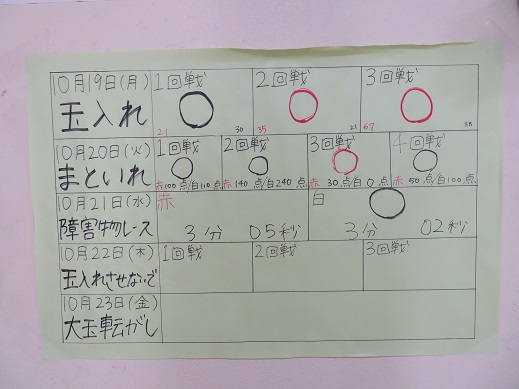 10月19日(月) 1回戦 2回戦 3回戦
玉入れ ○ ○ ○
21 30 35 21 67 38
10月20日(火) 1回戦 2回戦 3回戦 4回戦
まといれ ○ ○ ○ ○
赤100点/白110点 赤140点/白240点 赤30点/白0点 赤50点/白100点
10月21日(水) 赤 白 ○
障害物レース 3分 05秒 3分 02秒
10月22日(木) 1回戦 2回戦 3回戦
玉入れさせないで
10月23日(金)
大玉転がし